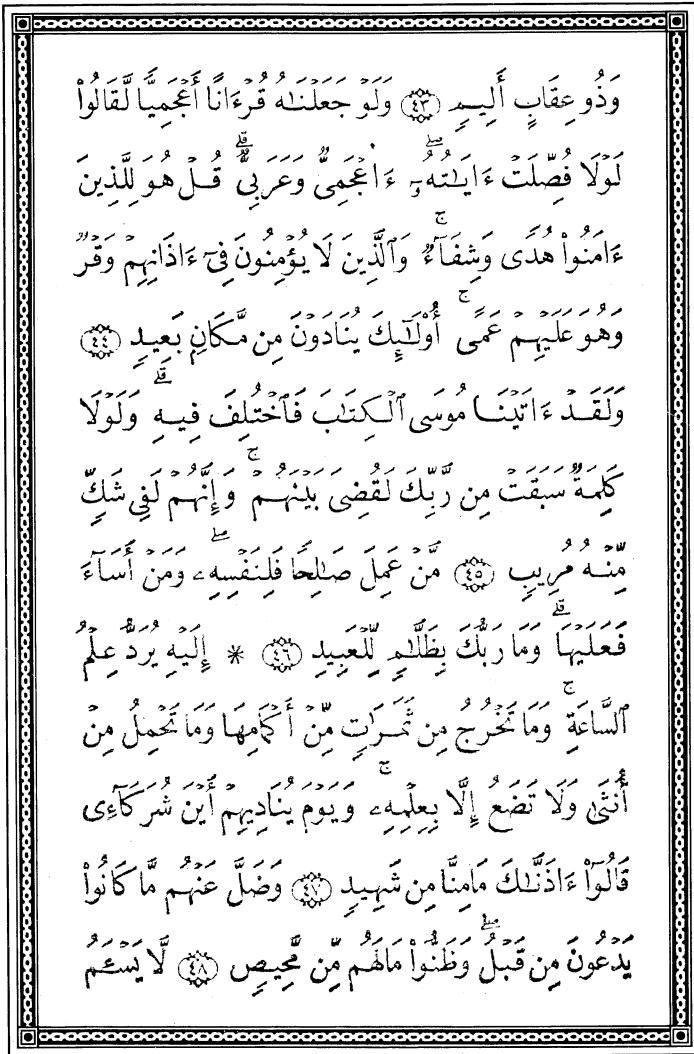 وَذُو عِقَابٍ أَلِيمٍ ٤٣ وَلَوْ جَعَلْنَٰهُ قُرْءَانًا أَعْجَمِيًّا لَّقَالُوا۟
لَوْلَا فُصِّلَتْ ءَايَٰتُهُۥٓ ۖ ءَا۬عْجَمِىٌّ وَعَرَبِىٌّ ۗ قُلْ هُوَ لِلَّذِينَ
ءَامَنُوا۟ هُدًى وَشِفَآءٌ ۚ وَٱلَّذِينَ لَا يُؤْمِنُونَ فِىٓ ءَاذَانِهِمْ وَقْرٌ
وَهُوَ عَلَيْهِمْ عَمًى ۚ أُو۟لَٰٓئِكَ يُنَادَوْنَ مِن مَّكَانٍۭ بَعِيدٍ ٤٤
وَلَقَدْ ءَاتَيْنَا مُوسَى ٱلْكِتَٰبَ فَٱخْتُلِفَ فِيهِ ۗ وَلَوْلَا
كَلِمَةٌ سَبَقَتْ مِن رَّبِّكَ لَقُضِىَ بَيْنَهُمْ ۚ وَإِنَّهُمْ لَفِى شَكٍّ
مِّنْهُ مُرِيبٍ ٤٥ مَّنْ عَمِلَ صَٰلِحًا فَلِنَفْسِهِۦ ۖ وَمَنْ أَسَآءَ
فَعَلَيْهَا ۗ وَمَا رَبُّكَ بِظَلَّٰمٍ لِّلْعَبِيدِ ٤٦ * إِلَيْهِ يُرَدُّ عِلْمُ
ٱلسَّاعَةِ ۚ وَمَا تَخْرُجُ مِن ثَمَرَٰتٍ مِّنْ أَكْمَامِهَا وَمَا تَحْمِلُ مِنْ
أُنثَىٰ وَلَا تَضَعُ إِلَّا بِعِلْمِهِۦ ۚ وَيَوْمَ يُنَادِيهِمْ أَيْنَ شُرَكَآءِى
قَالُوٓا۟ ءَاذَنَّٰكَ مَا مِنَّا مِن شَهِيدٍ ٤٧ وَضَلَّ عَنْهُم مَّا كَانُوا۟
يَدْعُونَ مِن قَبْلُ ۖ وَظَنُّوا۟ مَا لَهُم مِّن مَّحِيصٍ ٤٨ لَّا يَسْـَٔمُ